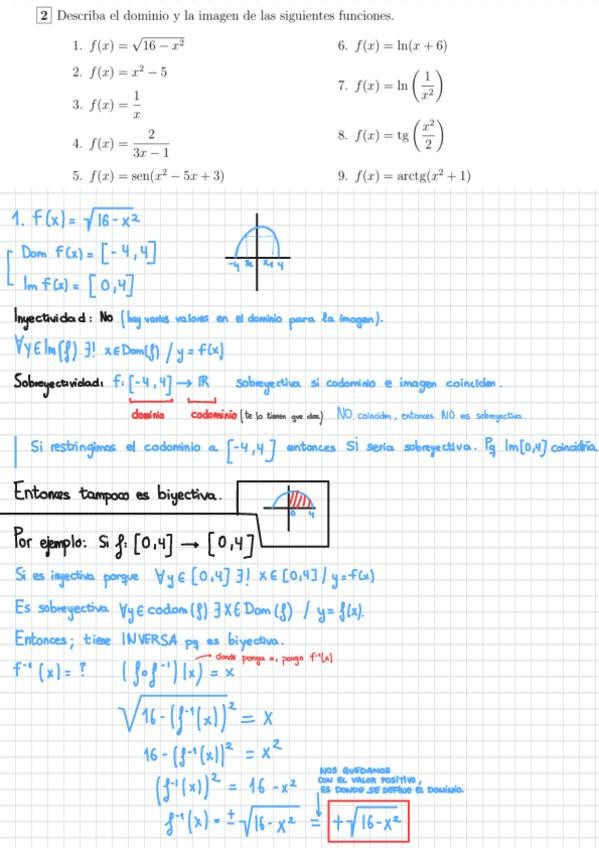 2 Describa el dominio y la imagen de las siguientes funciones.
1. f(x) = √(16 − x²)
2. f(x) = x² − 5
3. f(x) = 1/x
4. f(x) = 2/(3x − 1)
5. f(x) = sen(x² − 5x + 3)
6. f(x) = ln(x + 6)
7. f(x) = ln(1/x²)
8. f(x) = tg(x²/2)
9. f(x) = arctg(x² + 1)
1. f(x) = √(16-x²)
Dom f(x) = [-4,4]
Im f(x) = [0,4]
-4 x₁ 4
Inyectividad: No (hay varios valores en el dominio para la imagen).
∀y∈Im(f) ∃! x∈Dom(f) / y = f(x)
Sobreyectividad: f: [-4,4] → ℝ sobreyectiva si codominio e imagen coinciden.
dominio codominio (te lo tienen que dar) NO coinciden, entonces NO es sobreyectiva.
Si restringimos el codominio a [-4,4] entonces Sí sería sobreyectiva. Pq Im[0,4] coincidiría
Entonces tampoco es biyectiva.
0 4
Por ejemplo: Si f: [0,4] → [0,4]
Si es inyectiva porque ∀y∈[0,4] ∃! x∈[0,4] / y=f(x)
Es sobreyectiva ∀y∈codom(f) ∃x∈Dom(f) / y=f(x).
Entonces; tiene INVERSA pq es biyectiva.
→ donde ponga x, pongo f⁻¹(x)
f⁻¹(x) = ? (f∘f⁻¹)(x) = x
√(16-(f⁻¹(x))²) = x
16-(f⁻¹(x))² = x²
(f⁻¹(x))² = 16-x²
NOS QUEDAMOS
CON EL VALOR POSITIVO,
ES DONDE SE DEFINE EL DOMINIO.
f⁻¹(x) = ±√(16-x²) = +√(16-x²)